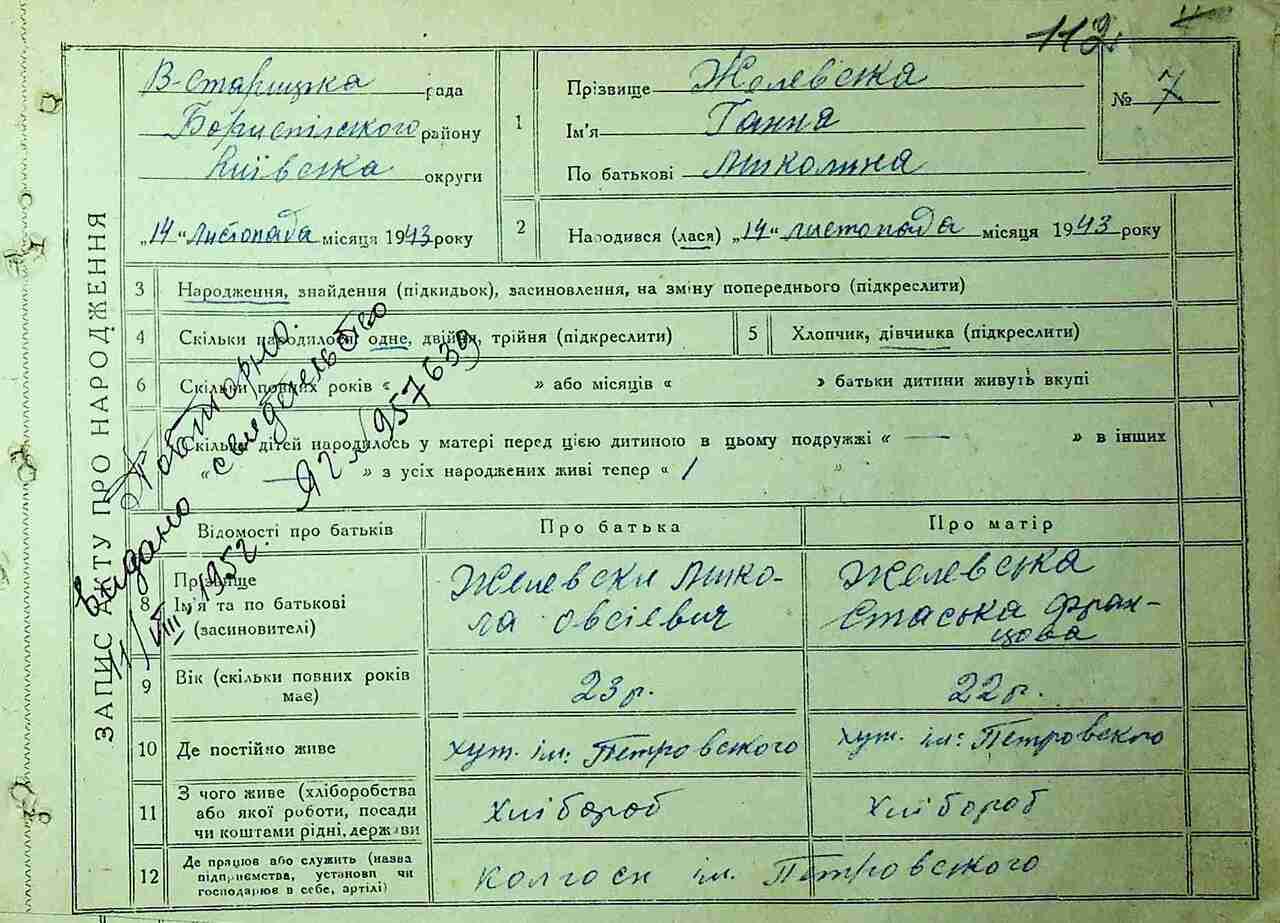 112.
11
ЗАПИС АКТУ ПРО НАРОДЖЕННЯ
В-Старицька рада
Бориспільского району
Київська округи
„14“ листопада місяця 1943 року
1
Прізвище Желевська
Ім'я Ганна
По батькові Миколина
№ 7
2
Народився (лася) „14“ листопада місяця 1943 року
3 Народження, знайдення (підкидьок), засиновлення, на зміну попереднього (підкреслити)
4 Скільки народилося: одне, двійня, трійня (підкреслити)
5 Хлопчик, дівчинка (підкреслити)
6 Скільки повних років « » або місяців « » батьки дитини живуть вкупі
Скільки дітей народилось у матері перед цією дитиною в цьому подружжі « — » в інших
« » з усіх народжених живі тепер « 1 »
Повторно
видано свидетельство
11/VIII 1952г. 957639
Відомості про батьків Про батька Про матір
8 Прізвище
Ім'я та по батькові
(засиновителі)
Желевски Мико-
ла Овсієвич
Желевська
Стаська Фран-
цова
9 Вік (скільки повних років
має)
23 р. 22 р.
10 Де постійно живе хут. ім: Петровского хут. ім: Петровского
11 З чого живе (хліборобства
або якої роботи, посади
чи коштами рідні, держави
хлібороб хлібороб
12 Де працює або служить (назва
підприємства, установи чи
господарює в себе, артілі)
колгосп ім. Петровского